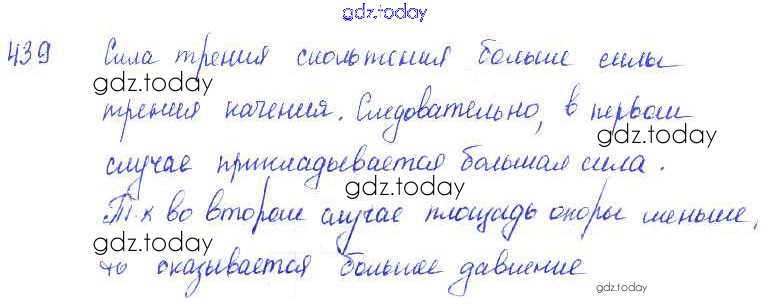 gdz.today
439 Сила трения скольжения больше силы
gdz.today
трения качения. Следовательно, в первом
gdz.today
случае прикладывается большая сила.
gdz.today
Т.к во втором случае площадь опоры меньше,
gdz.today
то оказывается большее давление
gdz.today